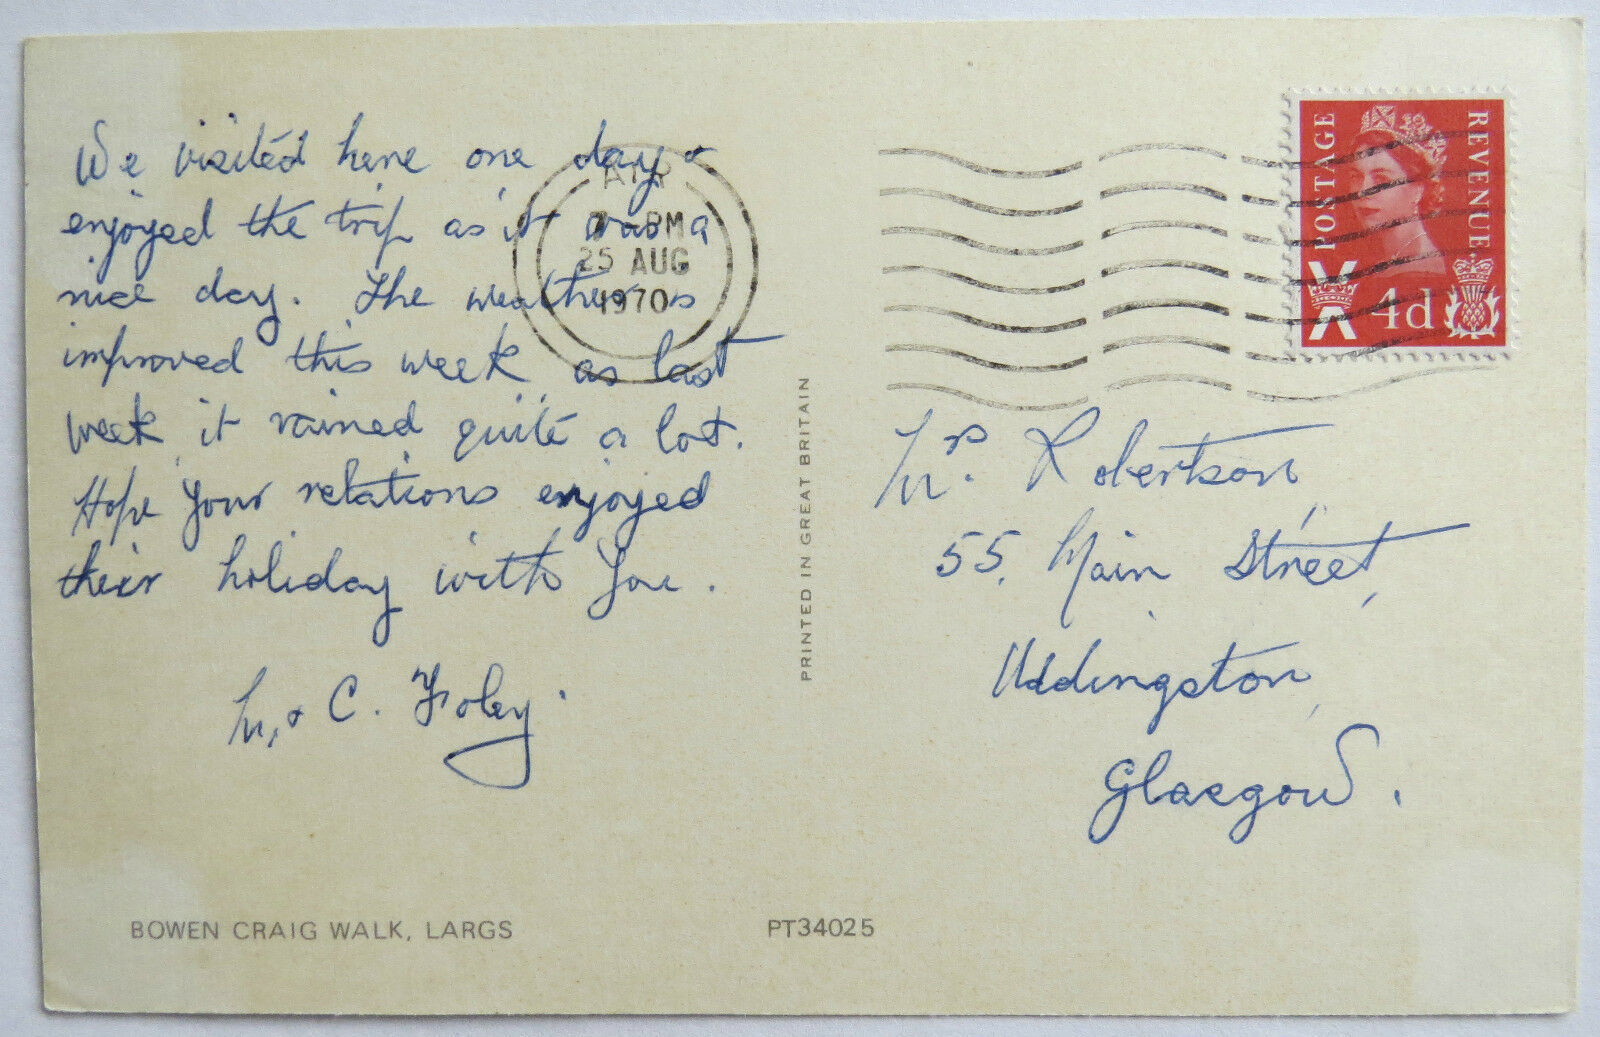 We visited here one day &
enjoyed the trip as it was a
nice day. The weather is
improved this week as last
week it rained quite a lot.
Hope your relations enjoyed
their holiday with you.
M. & C. Foley.
BOWEN CRAIG WALK, LARGS
PT34025
PRINTED IN GREAT BRITAIN
AYR
PM
25 AUG
1970
POSTAGE
REVENUE
4d
Mrs. Robertson,
55, Main Street,
Uddingston,
Glasgow.